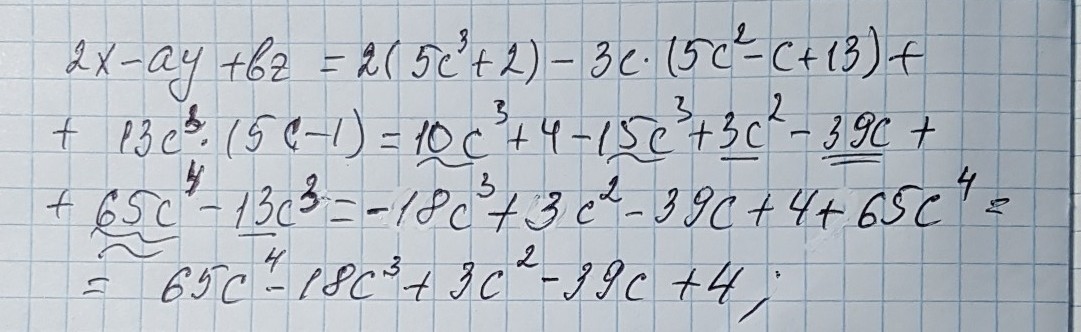 2x-ay+bz = 2(5c³+2)-3c·(5c²-c+13)+
+ 13c³·(5c-1)=10c³+4-15c³+3c²-39c+
+ 65c⁴-13c³=-18c³+3c²-39c+4+65c⁴=
= 65c⁴-18c³+3c²-39c+4;